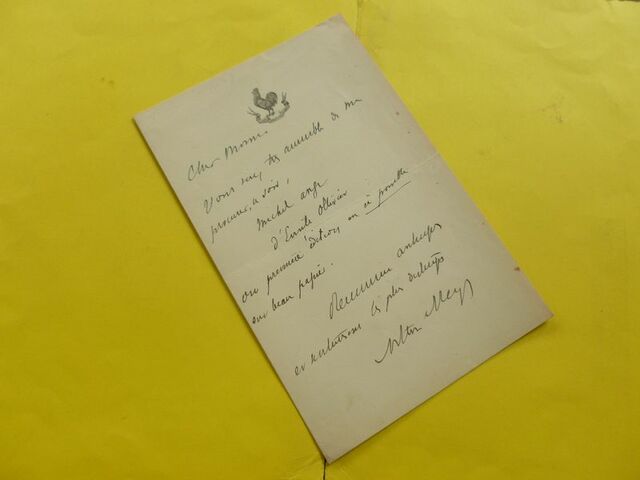 Cher Monsieur
Vous seriez très aimable de me
procurer, ce soir,
Michel ange
d'Emile Ollivier
en première édition et si possible
sur beau papier.
Remerciements anticipés
et salutations les plus distinguées
Arthur Meyer